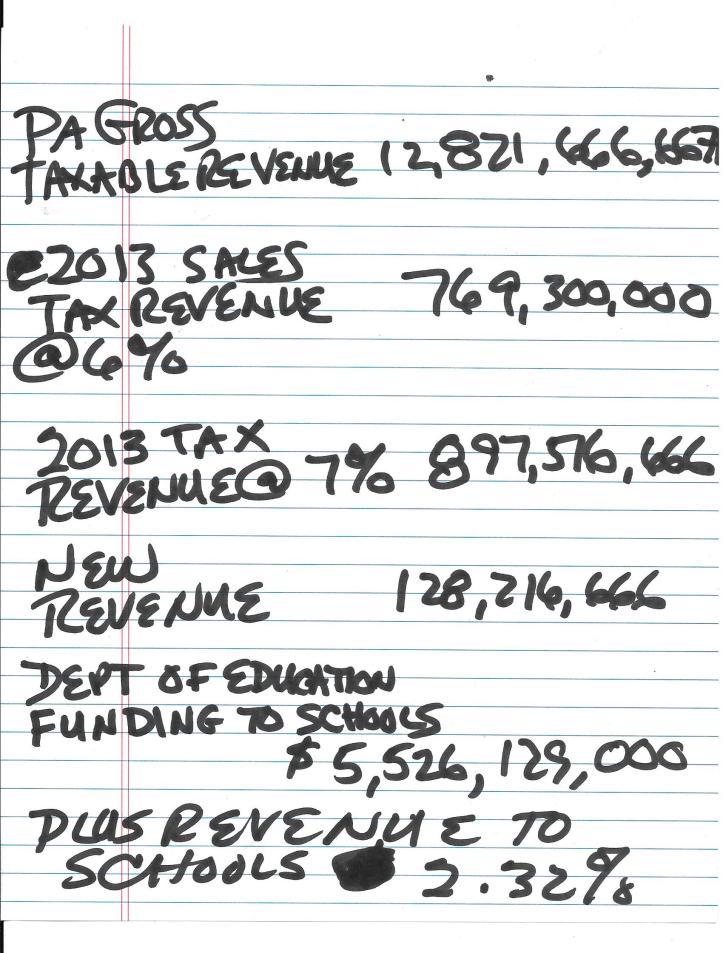 PA GROSS
TAXABLE REVENUE 12,821,666,667
2013 SALES
TAX REVENUE 769,300,000
@6%
2013 TAX
REVENUE@ 7% 897,516,666
NEW
REVENUE 128,216,666
DEPT OF EDUCATION
FUNDING TO SCHOOLS
$5,526,129,000
PLUS REVENUE TO
SCHOOLS 2.32%